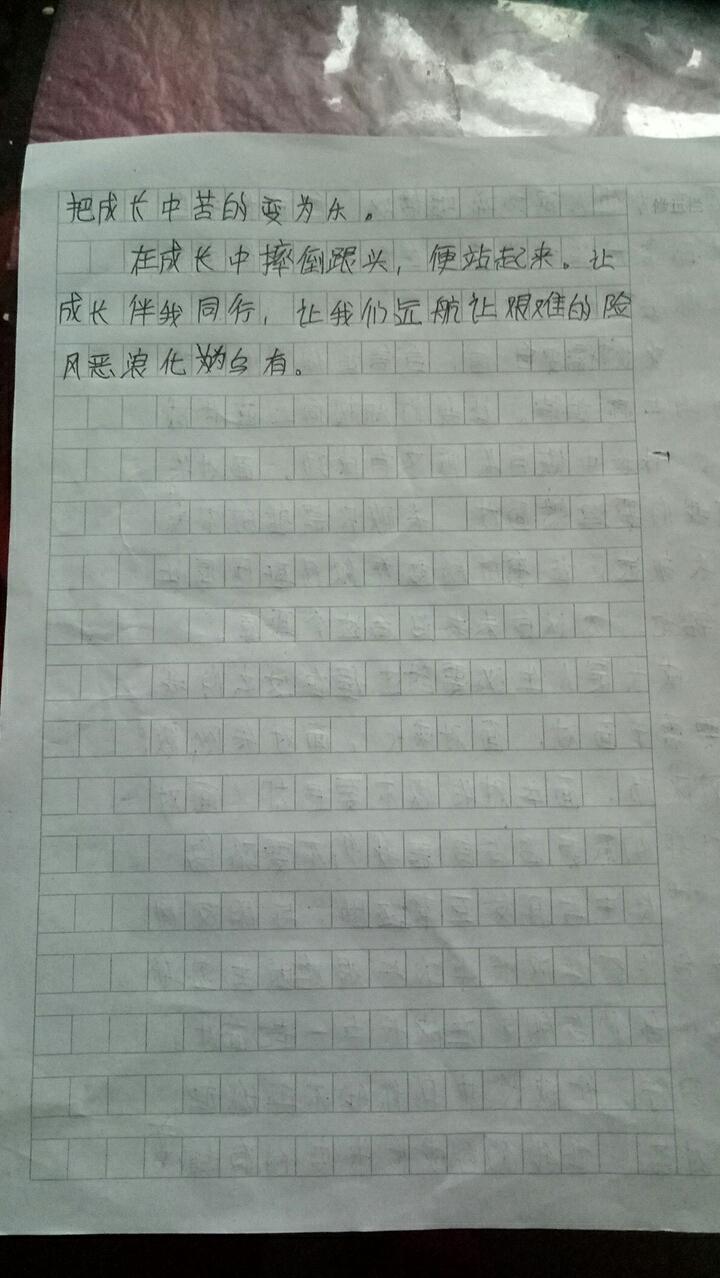 把成长中苦的变为乐。
在成长中摔倒跟头，便站起来。让
成长伴我同行，让我们远航让艰难的险
风恶浪化为乌有。